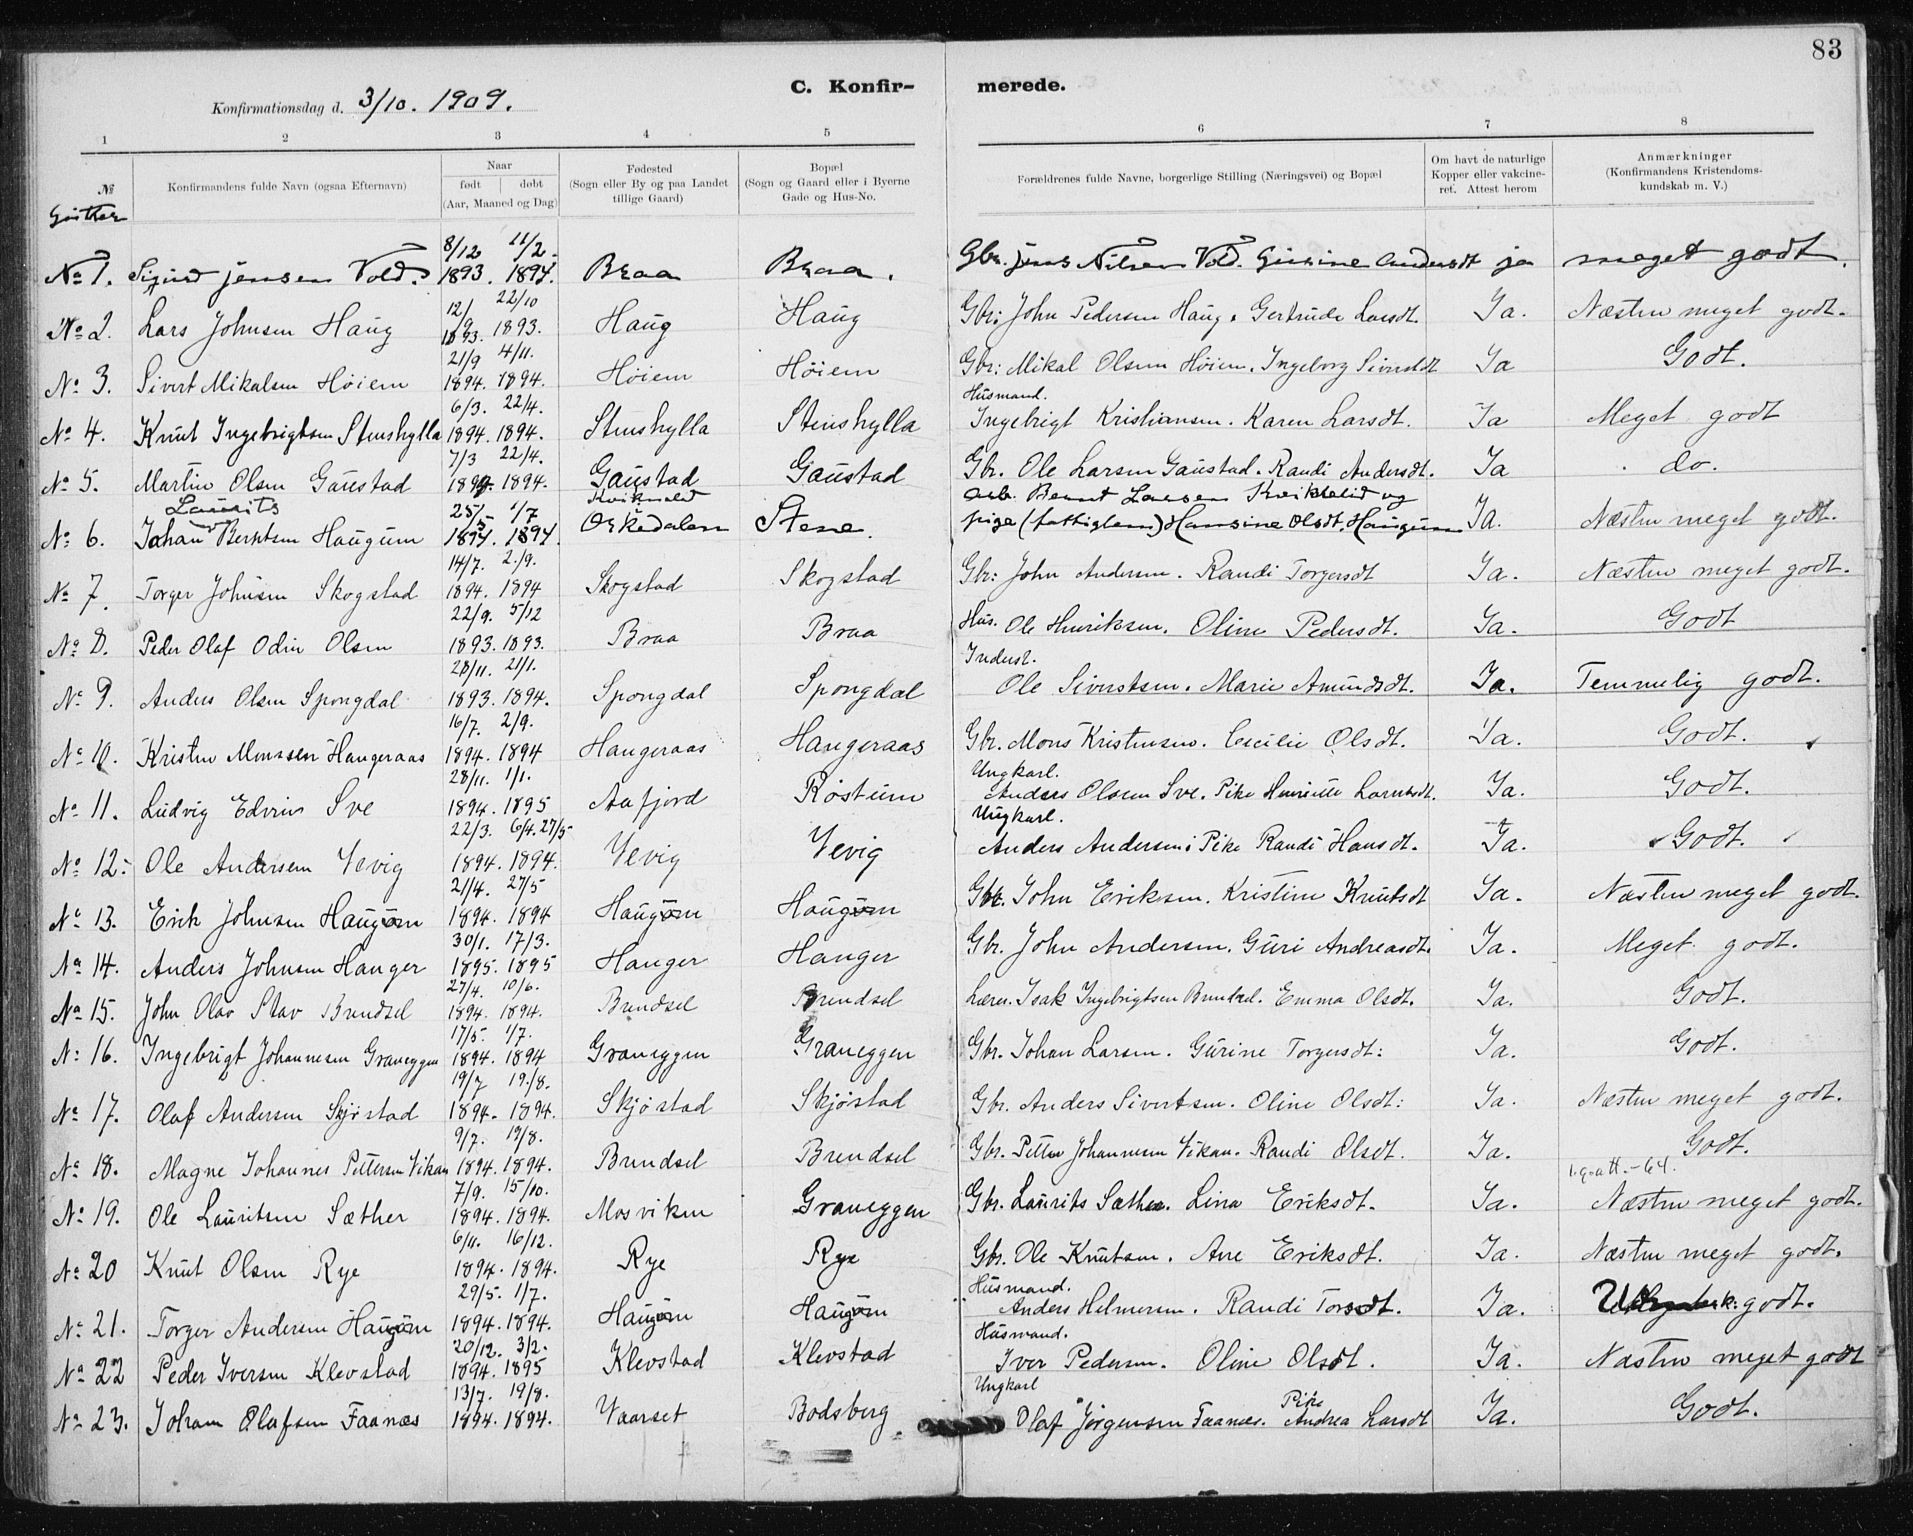 83
C. Konfir- merede.
Konfirmationsdag d. 3/10. 1909.
1 2 3 4 5 6 7 8
№ Konfirmandens fulde Navn (ogsaa Efternavn) Naar født døbt (Aar, Maaned og Dag) Fødested (Sogn eller By og paa Landet tillige Gaard) Bopæl (Sogn og Gaard eller i Byerne Gade og Hus-No. Forældrenes fulde Navne, borgerlige Stilling (Næringsvei) og Bopæl Om havt de naturlige Kopper eller vakcineret. Attest herom Anmærkninger (Konfirmandens Kristendomskundskab m. V.)
Gutter
8/12 11/2.
No 1. Sigurd Jensen Vold. 1893. 1894. Braa Braa. Gbr. Jens Nilsen Vold. Gurine Andersdt ja meget godt.
12/9 22/10
No 2. Lars Johnsen Haug 1893. 1893. Haug Haug Gbr: John Pedersen Haug. Gertrude Larsdt. Ja. Næsten meget godt.
21/9 4/11.
No 3. Sivert Mikalsen Höiem 1894. 1894. Höiem Höiem Gbr: Mikal Olsen Höiem. Ingeborg Sivertsdt Ja Godt.
6/3. 22/4. Husmand.
No 4. Knut Ingebrigtsen Stenshylla 1894. 1894. Stenshylla Stenshylla Ingebrigt Kristiansen. Karen Larsdt. Ja Meget godt
7/3 22/4.
No 5. Martin Olsen Gaustad 1894. 1894. Gaustad Gaustad Gbr. Ole Larsen Gaustad. Randi Andersdt. Ja do.
Laurits 25/5 1/7 Arb. Bernt Larsen Kviklelid og
No 6. Johan Berntsen Haugum 1894. 1894. Orkedalen Stene. pige (fattiglem) Hansine Olsdt. Haugum Ja. Næsten meget godt.
14/7. 2./9.
No 7. Torger Johnsen Skogstad 1894. 1894 Skogstad Skogstad Gbr: John Andersen. Randi Torgersdt Ja. Næsten meget godt.
22/9. 5/12
No 8. Peder Olaf Odin Olsen 1893. 1893. Braa Braa Hus. Ole Henriksen. Oline Pedersdt. Ja. Godt
28/11. 21/1. Inderst.
No 9. Anders Olsen Spongdal 1893. 1894. Spongdal Spongdal Ole Sivertsen. Marie Amundsdt. Ja. Temmelig godt.
16/7. 2/9.
No 10. Kristen Monssen Hangeraas 1894. 1894 Hangeraas Hangeraas Gbr. Mons Kristensen. Cecilie Olsdt. Ja. Godt.
28/11. 1/1. Ungkarl.
No 11. Ludvig Edvin Sve 1894. 1895 Aafjord Röstum Anders Olsen Sve. Pike Henriette Larsdt. Ja. Godt.
22/3. 6/4. 27/5 Ungkarl.
No 12. Ole Andersen Vevig 1894. 1894. Vevig Vevig Anders Andersen. Pike Randi Hansdt. Ja. Godt.
21/4. 27/5
No 13. Erik Johnsen Haugum 1894. 1894 Haugum Haugum Gbr. John Eriksen. Kristine Knutsdt Ja. Næsten meget godt.
30/1. 17/3.
No 14. Anders Johnsen Hanger 1895. 1895 Hanger Hanger Gbr. John Andersen. Guri Andreasdt. Ja. Meget godt.
27/4. 10/6.
No 15. John Olav Stav Brendsel 1894. 1894. Brendsel Brendsel Lærer. Isak Ingebrigtsen Brendsel. Emma Olsdt. Ja. Godt.
17/5. 1/7.
No 16. Ingebrigt Johannesen Graneggen 1894. 1894 Graneggen Graneggen Gbr. Johan Larsen. Gurine Torgersdt: Ja. Godt.
19/7 19./8.
No 17. Olaf Andersen Skjöstad 1894. 1894. Skjöstad Skjöstad Gbr. Anders Sivertsen. Oline Olsdt: Ja. Næsten meget godt.
9/7. 19/8.
No 18. Magne Johannes Pettersen Vikan 1894. 1894. Brendsel Brendsel Gbr. Petter Johannesen Vikan. Randi Olsdt. Ja. Godt.
7/9. 15/10. att. -64.
No 19. Ole Lauritsen Sæther 1894. 1894. Mosviken Graneggen Gbr. Laurits Sæther. Lina Eriksdt. Ja. Næsten meget godt.
6/11. 16/12.
No 20 Knut Olsen Rye 1894. 1894. Rye Rye Gbr. Ole Knutsen. Ane Eriksdt. Ja. Næsten meget godt.
29/5. 1/7. Husmand.
No 21. Torger Andersen Haugum 1894. 1894. Haugum Haugum Anders Helmersen. Randi Torsdt. Ja. godt.
20/12. 3/2. Husmand.
No 22 Peder Iversen Klevstad 1894. 1895 Klevstad Klevstad Iver Pedersen. Oline Olsdt. Ja. Næsten meget godt
13/7. 19/8. Ungkarl Pike
No 23. Johan Olafsen Faanæs 1894. 1894. Vaarset Bodsberg Olaf Jörgensen Faanæs. Andrea Larsdt Ja. Godt.